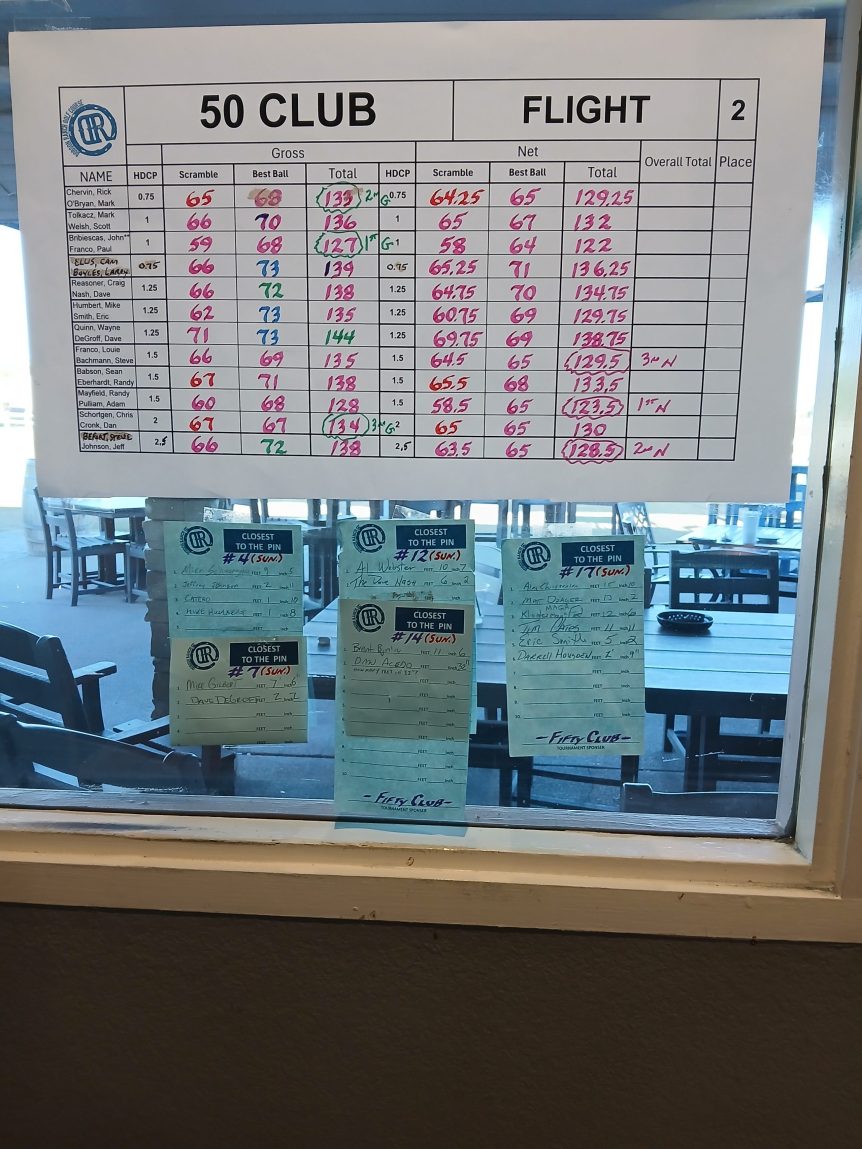 50 CLUB FLIGHT 2
Gross Net Overall Total Place
NAME HDCP Scramble Best Ball Total HDCP Scramble Best Ball Total
Chervin, Rick
O'Bryan, Mark 0.75 65 68 133 2nd G 0.75 64.25 65 129.25
Tolkacz, Mark
Welsh, Scott 1 66 70 136 1 65 67 132
Bribiescas, John**
Franco, Paul 1 59 68 127 1st G 1 58 64 122
ELLIS, CAM
BOYLES, LARRY 0.75 66 73 139 0.75 65.25 71 136.25
Reasoner, Craig
Nash, Dave 1.25 66 72 138 1.25 64.75 70 134.75
Humbert, Mike
Smith, Eric 1.25 62 73 135 1.25 60.75 69 129.75
Quinn, Wayne
DeGroff, Dave 1.25 71 73 144 1.25 69.75 69 138.75
Franco, Louie
Bachmann, Steve 1.5 66 69 135 1.5 64.5 65 129.5 3rd N
Babson, Sean
Eberhardt, Randy 1.5 67 71 138 1.5 65.5 68 133.5
Mayfield, Randy
Pulliam, Adam 1.5 60 68 128 1.5 58.5 65 123.5 1st N
Schortgen, Chris
Cronk, Dan 2 67 67 134 3rd G 2 65 65 130
BEFORT, STEVE
Johnson, Jeff 2.5 66 72 138 2.5 63.5 65 128.5 2nd N
CLOSEST
TO THE PIN
#4 (SUN.)
CLOSEST
TO THE PIN
#7 (SUN.)
1. MIKE GILBERT 7 FEET 6 Inch
2. DAVE DEGROFF 2 FEET 2 Inch
CLOSEST
TO THE PIN
#12 (SUN.)
Al Webster 10 FEET 7 Inch
Dave NASH 6 FEET 2 Inch
CLOSEST
TO THE PIN
#14 (SUN.)
2. DAN ACEDO
- FIFTY CLUB -
TOURNAMENT SPONSER
CLOSEST
TO THE PIN
#17 (SUN.)
ERIC SMITH 5 FEET 2 Inch
- FIFTY CLUB -
TOURNAMENT SPONSER